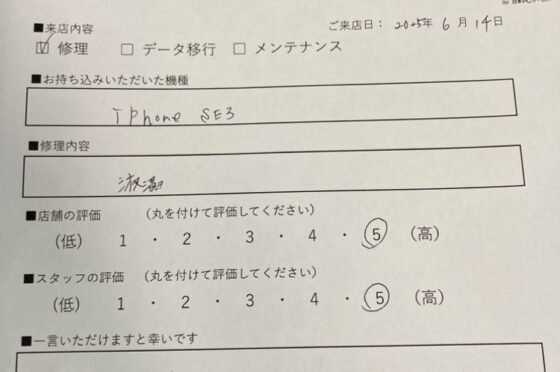 ■来店内容 ご来店日： 2025年 6月 14日
☑ 修理 □ データ移行 □ メンテナンス
■お持ち込みいただいた機種
iPhone SE3
■修理内容
液晶
■店舗の評価 （丸を付けて評価してください）
（低） 1 ・ 2 ・ 3 ・ 4 ・ 5 （高）
■スタッフの評価 （丸を付けて評価してください）
（低） 1 ・ 2 ・ 3 ・ 4 ・ 5 （高）
■一言いただけますと幸いです